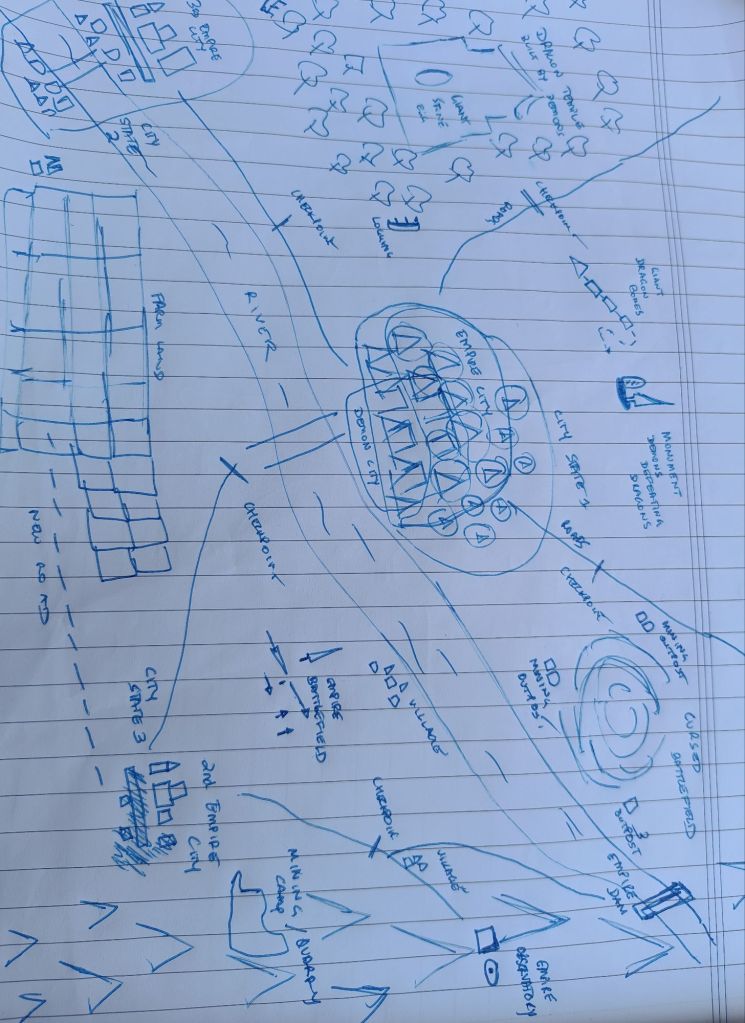 3RD EMPIRE
CITY
CITY
STATE
2
DRAGON TEMPLE
BUILT BY
DEMONS
GIANT
SPINE
LOGGING
CHECKPOINT
ROADS
CHECKPOINT
GIANT
DRAGON
BONES
MONUMENT
DEMONS
DEFEATING
DRAGONS
RIVER
FARM LAND
EMPIRE
CITY
DEMON CITY
CITY STATE 1
ROADS
CHECKPOINT
CHECKPOINT
NEW ROAD
MINING
OUTPOST
MINING
OUTPOST
CURSED
BATTLEFIELD
?
OUTPOST
EMPIRE
DAM
EMPIRE
BATTLEFIELD
VILLAGE
CITY
STATE 3
2ND EMPIRE
CITY
CHECKPOINT
VILLAGE
MINING / QUARRY
CAMP
EMPIRE
OBSERVATORY